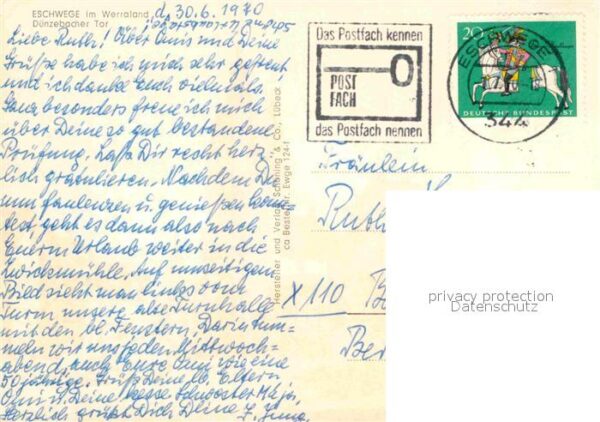 ESCHWEGE im Werraland
Dünzebacher Tor
d. 30.6.1970
Liebe Ruth! Über Omis und Deine
Grüße habe ich mich sehr gefreut
und ich danke Euch vielmals.
Ganz besonders freue ich mich
über Deine so gut bestandene
Prüfung, laß Dir recht herz-
lich gratulieren. Nachdem Du
nun faulenzen u. genießen konn-
test geht es dann also nach
Eurem Urlaub weiter in die
Zwickmühle. Auf umseitigen
Bild sieht man links vom
Turm unsere alte Turnhalle
mit den bl. Fenstern. Darin tum-
meln wir uns jeden Mittwoch-
abend, auch Eure Omi wie eine
50jährige. Grüß Deine lb. Eltern
Omi u. Deine kesse Schwester
Herzlich grüßt Dich Deine
Hersteller und Verlag Schöning & Co., Lübeck
Bestell-Nr. Ewge 124-f
Das Postfach kennen
POST
FACH
das Postfach nennen
ESCHWEGE
344
20
DEUTSCHE BUNDESPOST
Fräulein
Ruth
X 110
privacy protection
Datenschutz